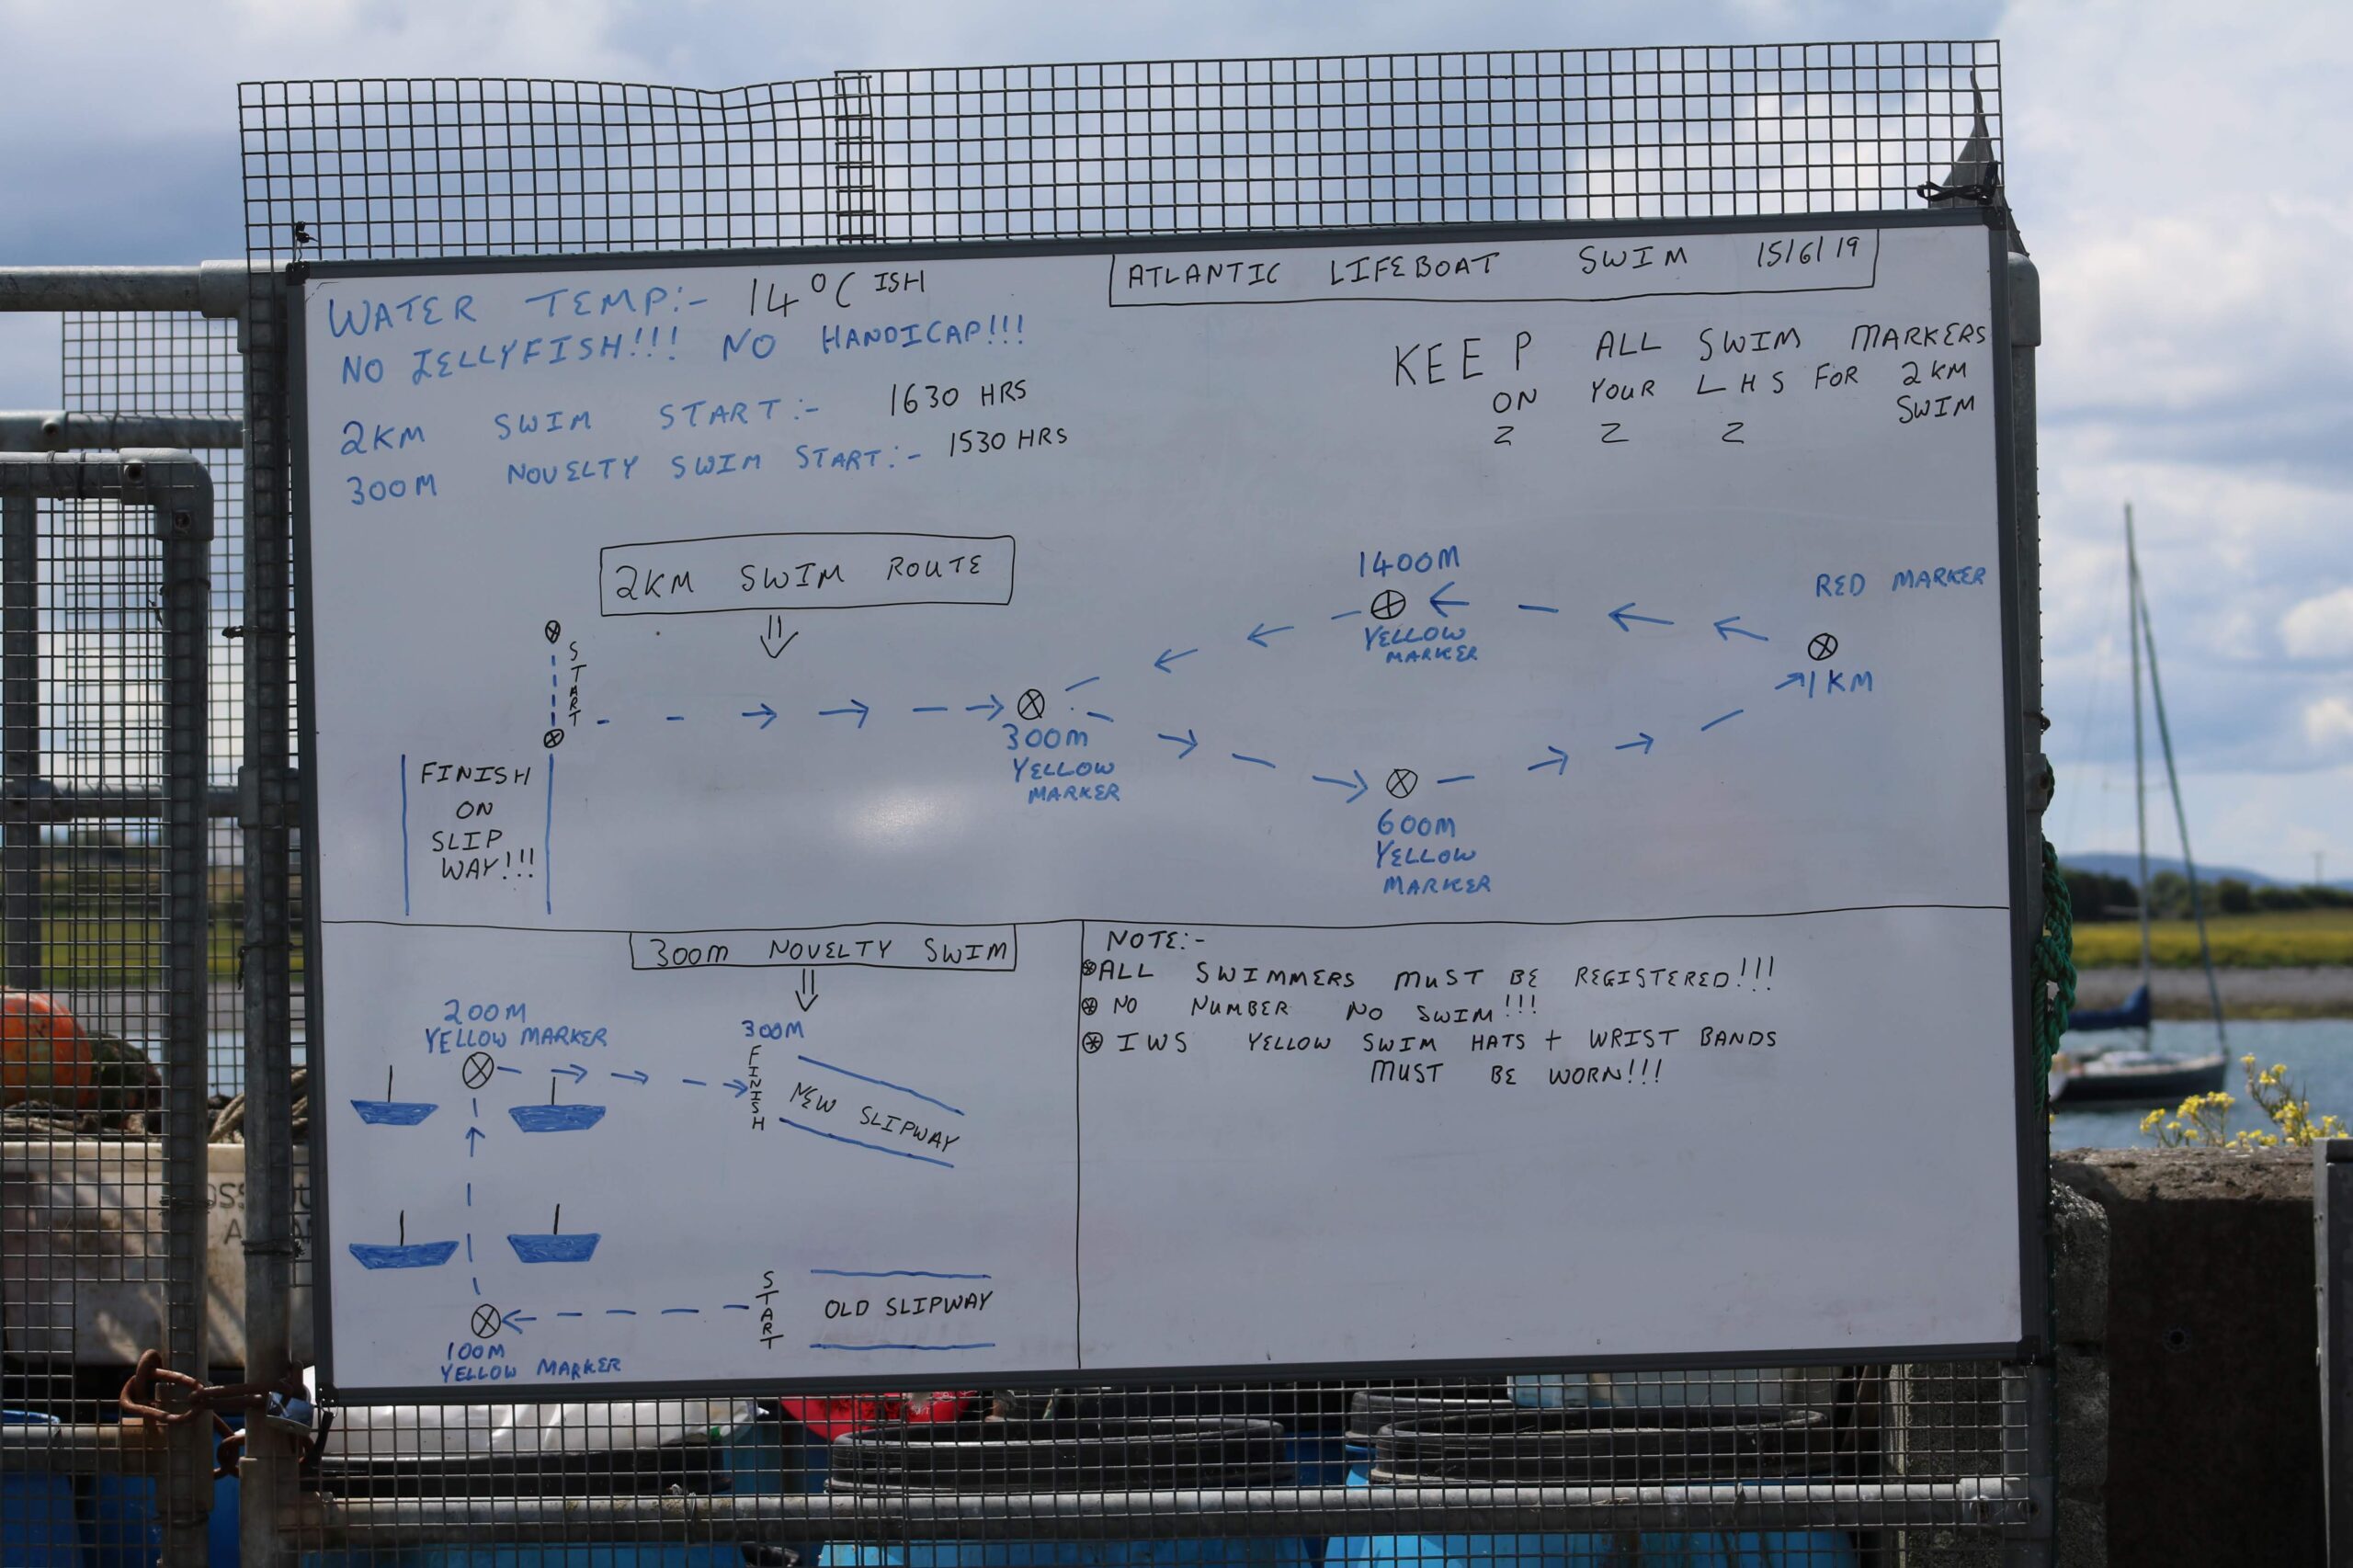 ATLANTIC LIFEBOAT SWIM 15/6/19
WATER TEMP:- 14°C ISH
NO JELLYFISH!!! NO HANDICAP!!!
2KM SWIM START:- 1630 HRS
300M NOVELTY SWIM START:- 1530 HRS
KEEP ALL SWIM MARKERS
ON YOUR LHS FOR 2KM
SWIM
2KM SWIM ROUTE
START
FINISH
ON
SLIP
WAY!!!
300M
YELLOW
MARKER
600M
YELLOW
MARKER
RED MARKER
1KM
1400M
YELLOW
MARKER
300M NOVELTY SWIM
200M
YELLOW MARKER
300M
FINISH
NEW SLIPWAY
START
OLD SLIPWAY
100M
YELLOW MARKER
NOTE:-
ALL SWIMMERS MUST BE REGISTERED!!!
NO NUMBER NO SWIM!!!
IWS YELLOW SWIM HATS + WRIST BANDS
MUST BE WORN!!!